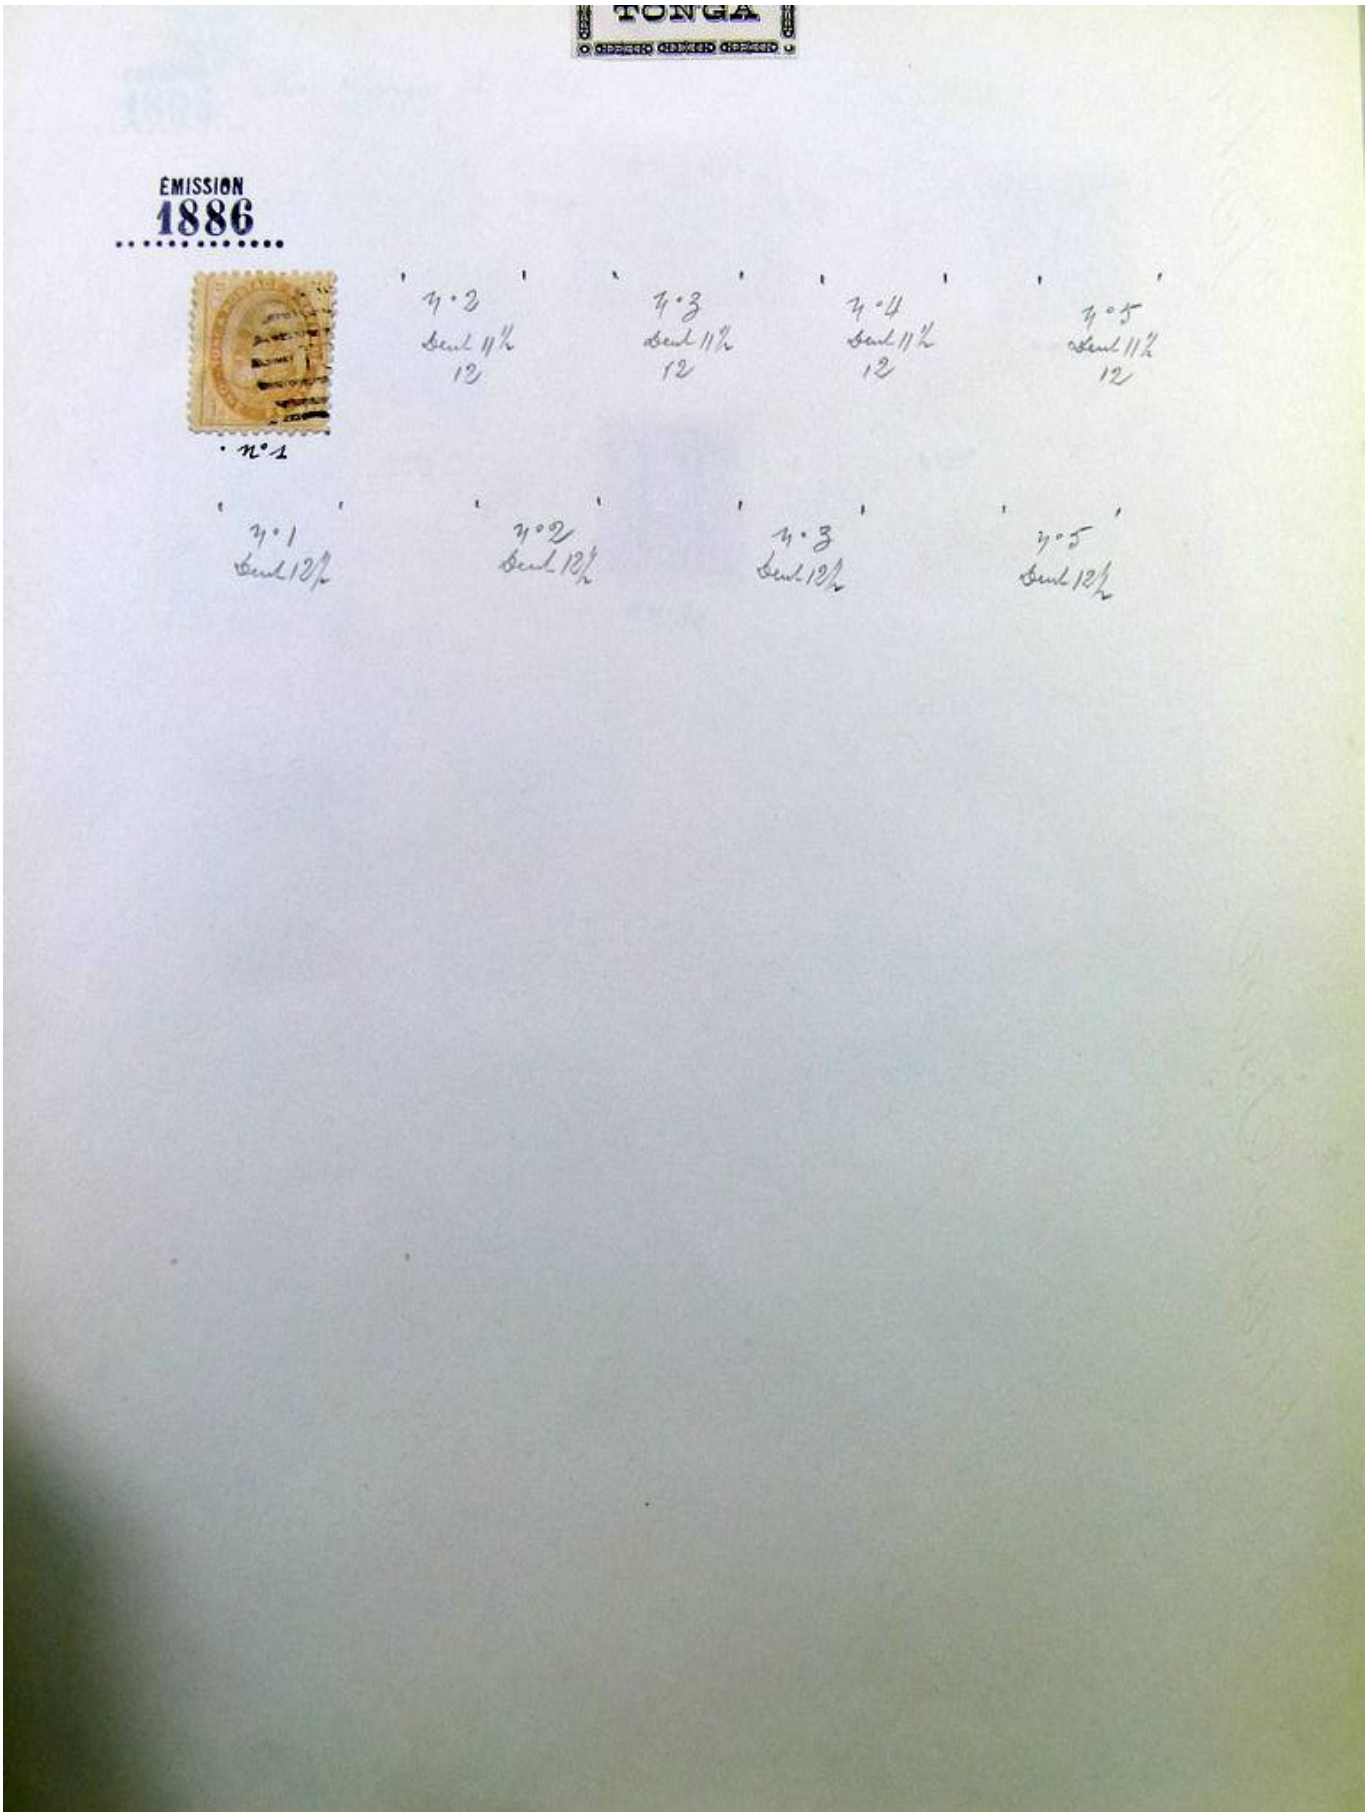 TONGA
ÉMISSION
1886
n°2
Dent 11½
12
n°3
Dent 11½
12
n°4
Dent 11½
12
n°5
Dent 11½
12
n°1
n°1
Dent 12½
n°2
Dent 12½
n°3
Dent 12½
n°5
Dent 12½